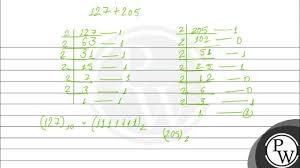 127+205
2 127 — 1 2 205 — 1
2 63 — 1 2 102 — 0
2 31 — 1 2 51 — 1
2 15 — 1 2 25 — 1
2 7 — 1 2 12 — 0
2 3 — 1 2 6 — 0
1 2 3 — 1
1
(127)₁₀ = (1111111)₂ (205)₂
PW